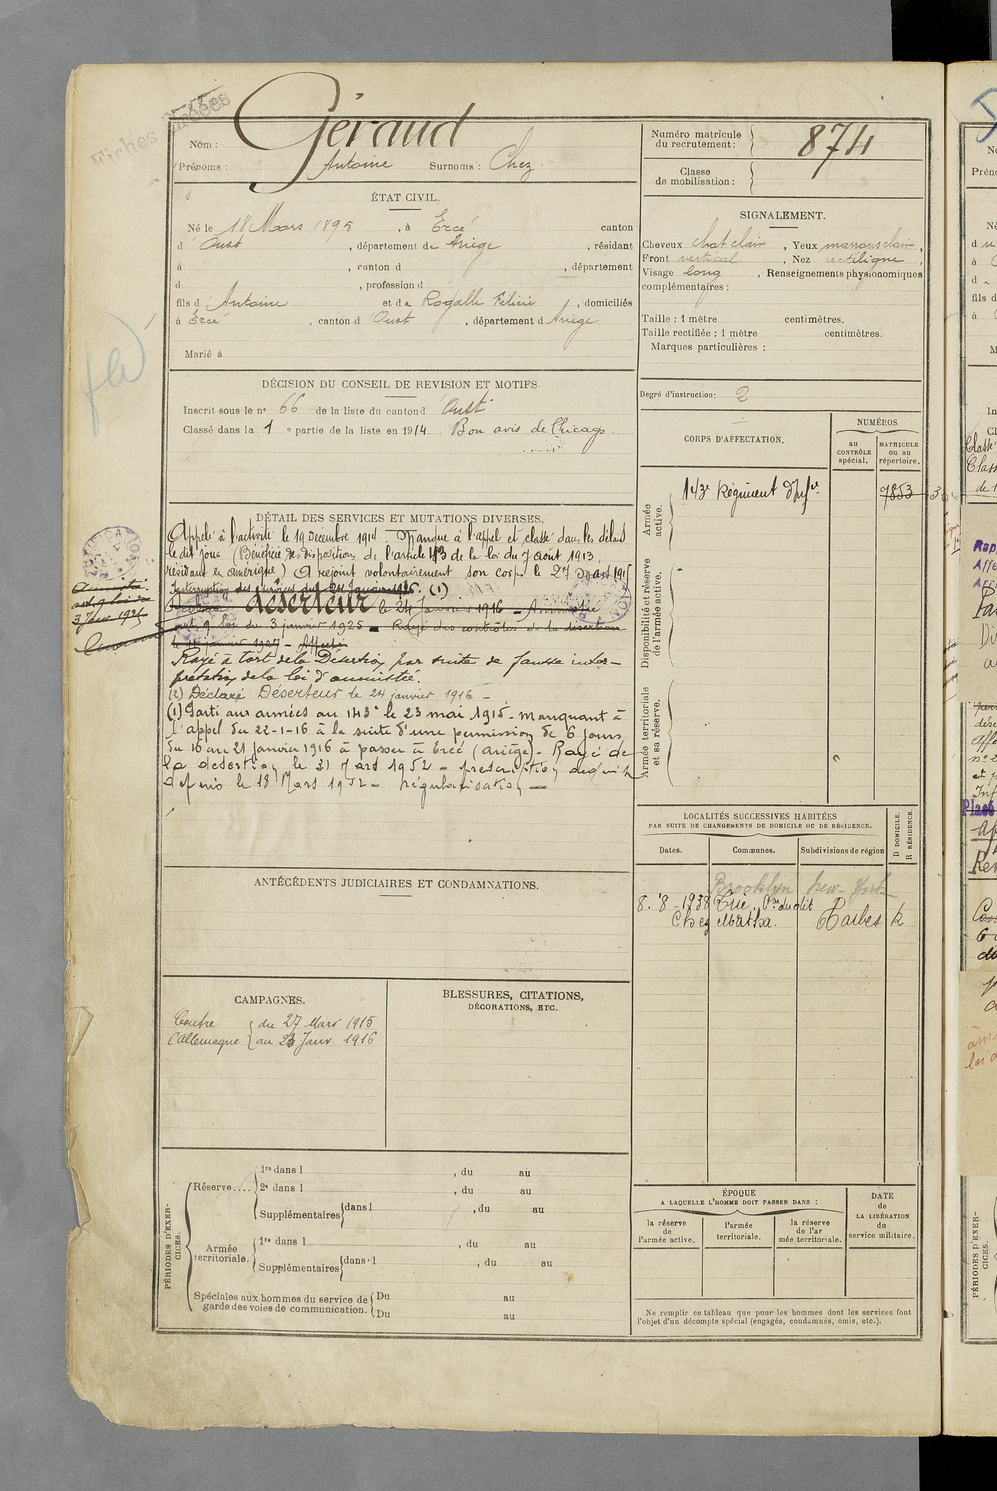 Fiches
Géraud
Nom :
Prénoms : Antoine Surnoms : Chez
Numéro matricule du recrutement : 874
Classe de mobilisation :
ÉTAT CIVIL.
Né le 18 Mars 1895, à Ercé canton
d'Oust, département de Ariège, résidant
à , canton d , département
d , profession d
fils d'Antoine et de Rogalle Félicie, domiciliés
à Ercé, canton d'Oust, département d'Ariège
Marié à
SIGNALEMENT.
Cheveux chat clair, Yeux marrons clair,
Front vertical, Nez rectiligne,
Visage long, Renseignements physionomiques
complémentaires :
Taille : 1 mètre centimètres.
Taille rectifiée : 1 mètre centimètres.
Marques particulières :
DÉCISION DU CONSEIL DE REVISION ET MOTIFS.
Inscrit sous le nº 66 de la liste du canton d'Oust
Classé dans la 1e partie de la liste en 1914. Bon avis de Chicago.
Degré d'instruction : 2
CORPS D'AFFECTATION.
NUMÉROS
au CONTRÔLE spécial.
MATRICULE ou au répertoire.
Armée active.
143e Régiment d'Infie.
7853
Disponibilité et réserve de l'armée active.
Armée territoriale et sa réserve.
DÉTAIL DES SERVICES ET MUTATIONS DIVERSES.
Appelé à l'activité le 19 Décembre 1914 - Manque à l'appel et classé dans les délais
le dit jour (Bénéficie des dispositions de l'article 43 de la loi du 7 Août 1913
résidant en Amérique) A rejoint volontairement son corps le 27 Mars 1915
Interruption des services du 24 Janvier 1916. (1)
déserteur le 24 Janvier 1916 - Amnistié
art 9 loi du 3 janvier 1925 - Rayé des contrôles de la désertion
le janvier 1927 - Affecté
Rayé à tort de la Désertion par suite de fausse inter-
prétation de la loi d'amnistie.
(2) Déclaré Déserteur le 24 janvier 1916 -
(1) Parti aux armées au 143e le 23 mai 1915 - manquant à
l'appel du 22-1-16 à la suite d'une permission de 6 jours
du 16 au 21 janvier 1916 à passer à Ercé (Ariège) - Rayé de
la désertion le 31 Mars 1952 - prescription acquise
depuis le 18 Mars 1952 - régularisation -
Amnistié
art 9 loi du
3 Janv 1925
LOCALITÉS SUCCESSIVES HABITÉES
PAR SUITE DE CHANGEMENTS DE DOMICILE OU DE RÉSIDENCE.
Dates. Communes. Subdivisions de région
D DOMICILE. R RÉSIDENCE.
Brooklyn New-York
8.8-1938 Trie, dudit
Chez Matha. Tarbes R
ANTÉCÉDENTS JUDICIAIRES ET CONDAMNATIONS.
CAMPAGNES.
Contre { du 27 Mars 1915
l'Allemagne { au 23 Janv 1916
BLESSURES, CITATIONS,
DÉCORATIONS, ETC.
PÉRIODES D'EXERCICES.
Réserve....
1re dans l , du au
2e dans l , du au
Supplémentaires { dans l , du au
Armée territoriale.
1re dans l , du au
Supplémentaires { dans l , du au
Spéciales aux hommes du service de garde des voies de communication. { Du au
{ Du au
ÉPOQUE
A LAQUELLE L'HOMME DOIT PASSER DANS :
la réserve de l'armée active.
l'armée territoriale.
la réserve de l'armée territoriale.
DATE de LA LIBÉRATION du service militaire.
Ne remplir ce tableau que pour les hommes dont les services font
l'objet d'un décompte spécial (engagés, condamnés, omis, etc.).